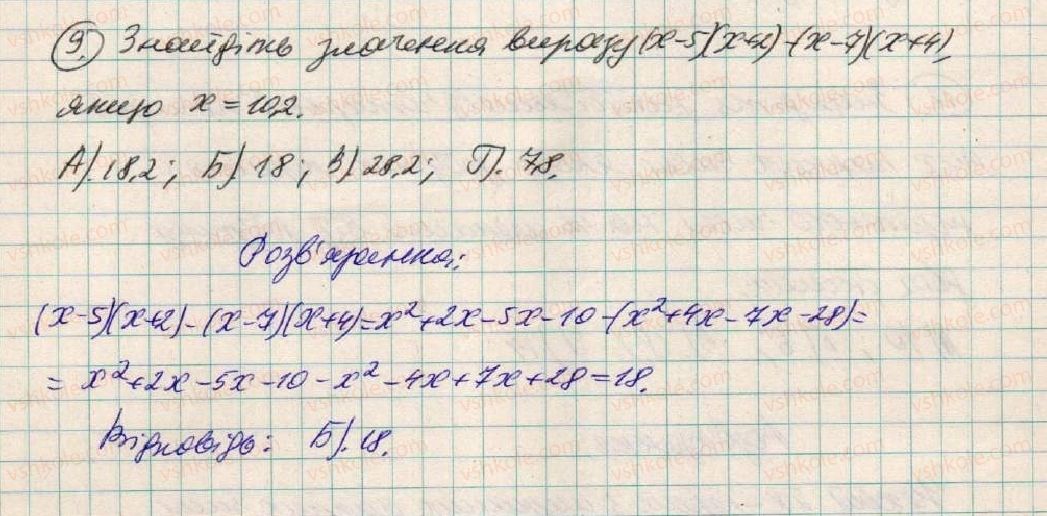 9. Знайдіть значення виразу (x-5)(x+2)-(x-7)(x+4),
якщо x = 10,2.
А). 18,2; Б). 18; В). 28,2; Г). 78.
Розв'язання:
(x-5)(x+2)-(x-7)(x+4)=x²+2x-5x-10-(x²+4x-7x-28)=
= x²+2x-5x-10-x²-4x+7x+28=18.
Відповідь: Б). 18.